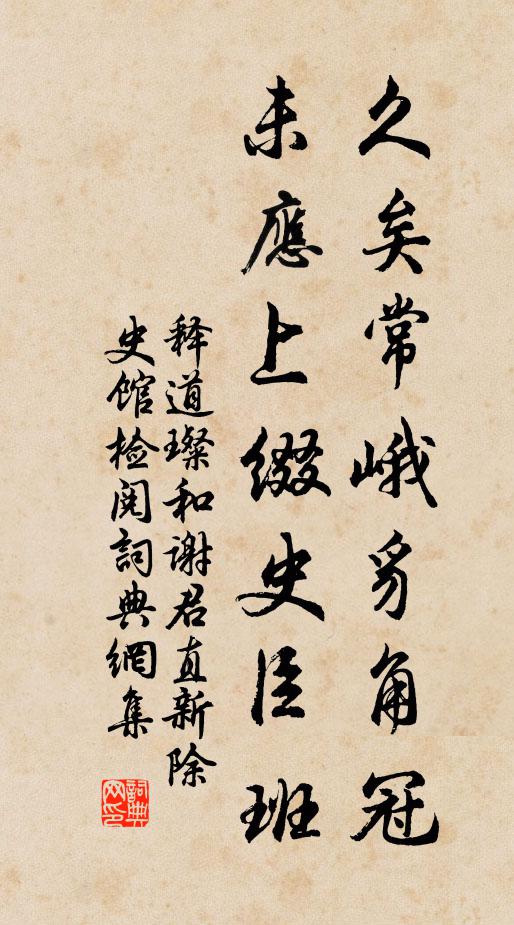 久矣常峨豸角冠
未應上綴史臣班
释道璨和谢君直新除
史馆检阅詞典網集
詞典网印